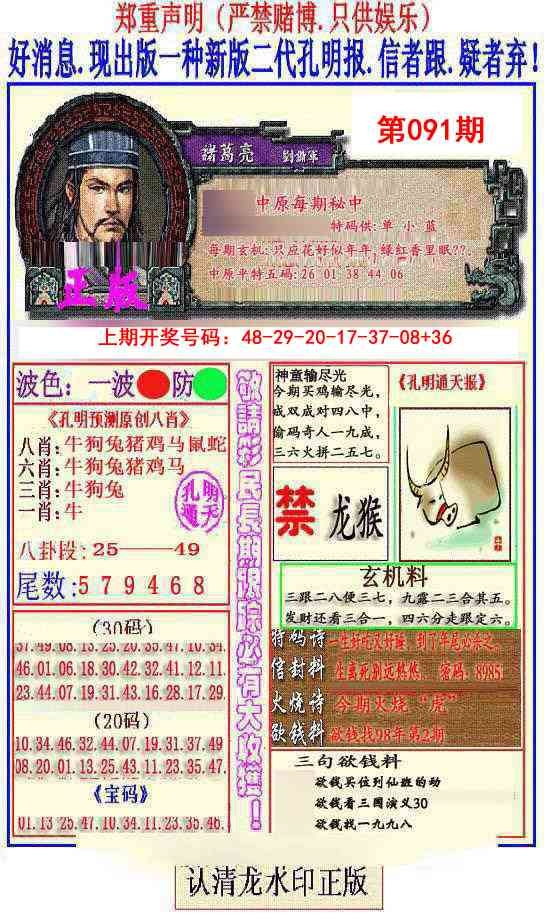 郑重声明（严禁赌博.只供娱乐）
好消息.现出版一种新版二代孔明报.信者跟.疑者弃！
第091期
諸葛亮
中原每期秘中
特码供:单 小 蓝
每期玄机:只应花好似年年,绿红香里眠??.
中原平特五码:26 01 38 44 06
正版
上期开奖号码：48-29-20-17-37-08+36
波色：一波 防
《孔明预测原创八肖》
八肖:牛狗兔猪鸡马鼠蛇
六肖:牛狗兔猪鸡马
三肖:牛狗兔
一肖:牛
孔明
通天
八卦段:25——49
尾数:579468
(30码)
37.49.08.13.25.20.35.47.10.34.
46.01.06.18.30.42.32.41.12.11.
23.44.07.19.31.43.16.28.17.29.
(20码)
10.34.46.32.44.07.19.31.37.49
08.20.01.13.25.43.11.23.35.47.
《宝码》
01.13 25.47.10.34.11.23.35.46.
敬請彩民長期跟踪必有大收獲！
神童输尽光
今期买鸡输尽光,
成双成对四八中,
偷码奇人一九成,
三六火拼二五七。
《孔明通天报》
禁 龙猴
玄机料
三跟二八便三七，九露二三合其五。
发财还看三合一，四六分走跟定六。
特码诗 一生好吃又好睡，到了年尾必杀之。
信封料 生离死别远悠悠， 密码：8985
火烧诗 今期火烧“虎”
欲钱料 欲钱找98年第2期
三句欲钱料
欲钱买位到仙班的动
欲钱看三国演义30
欲钱找一九九八
认清龙水印正版